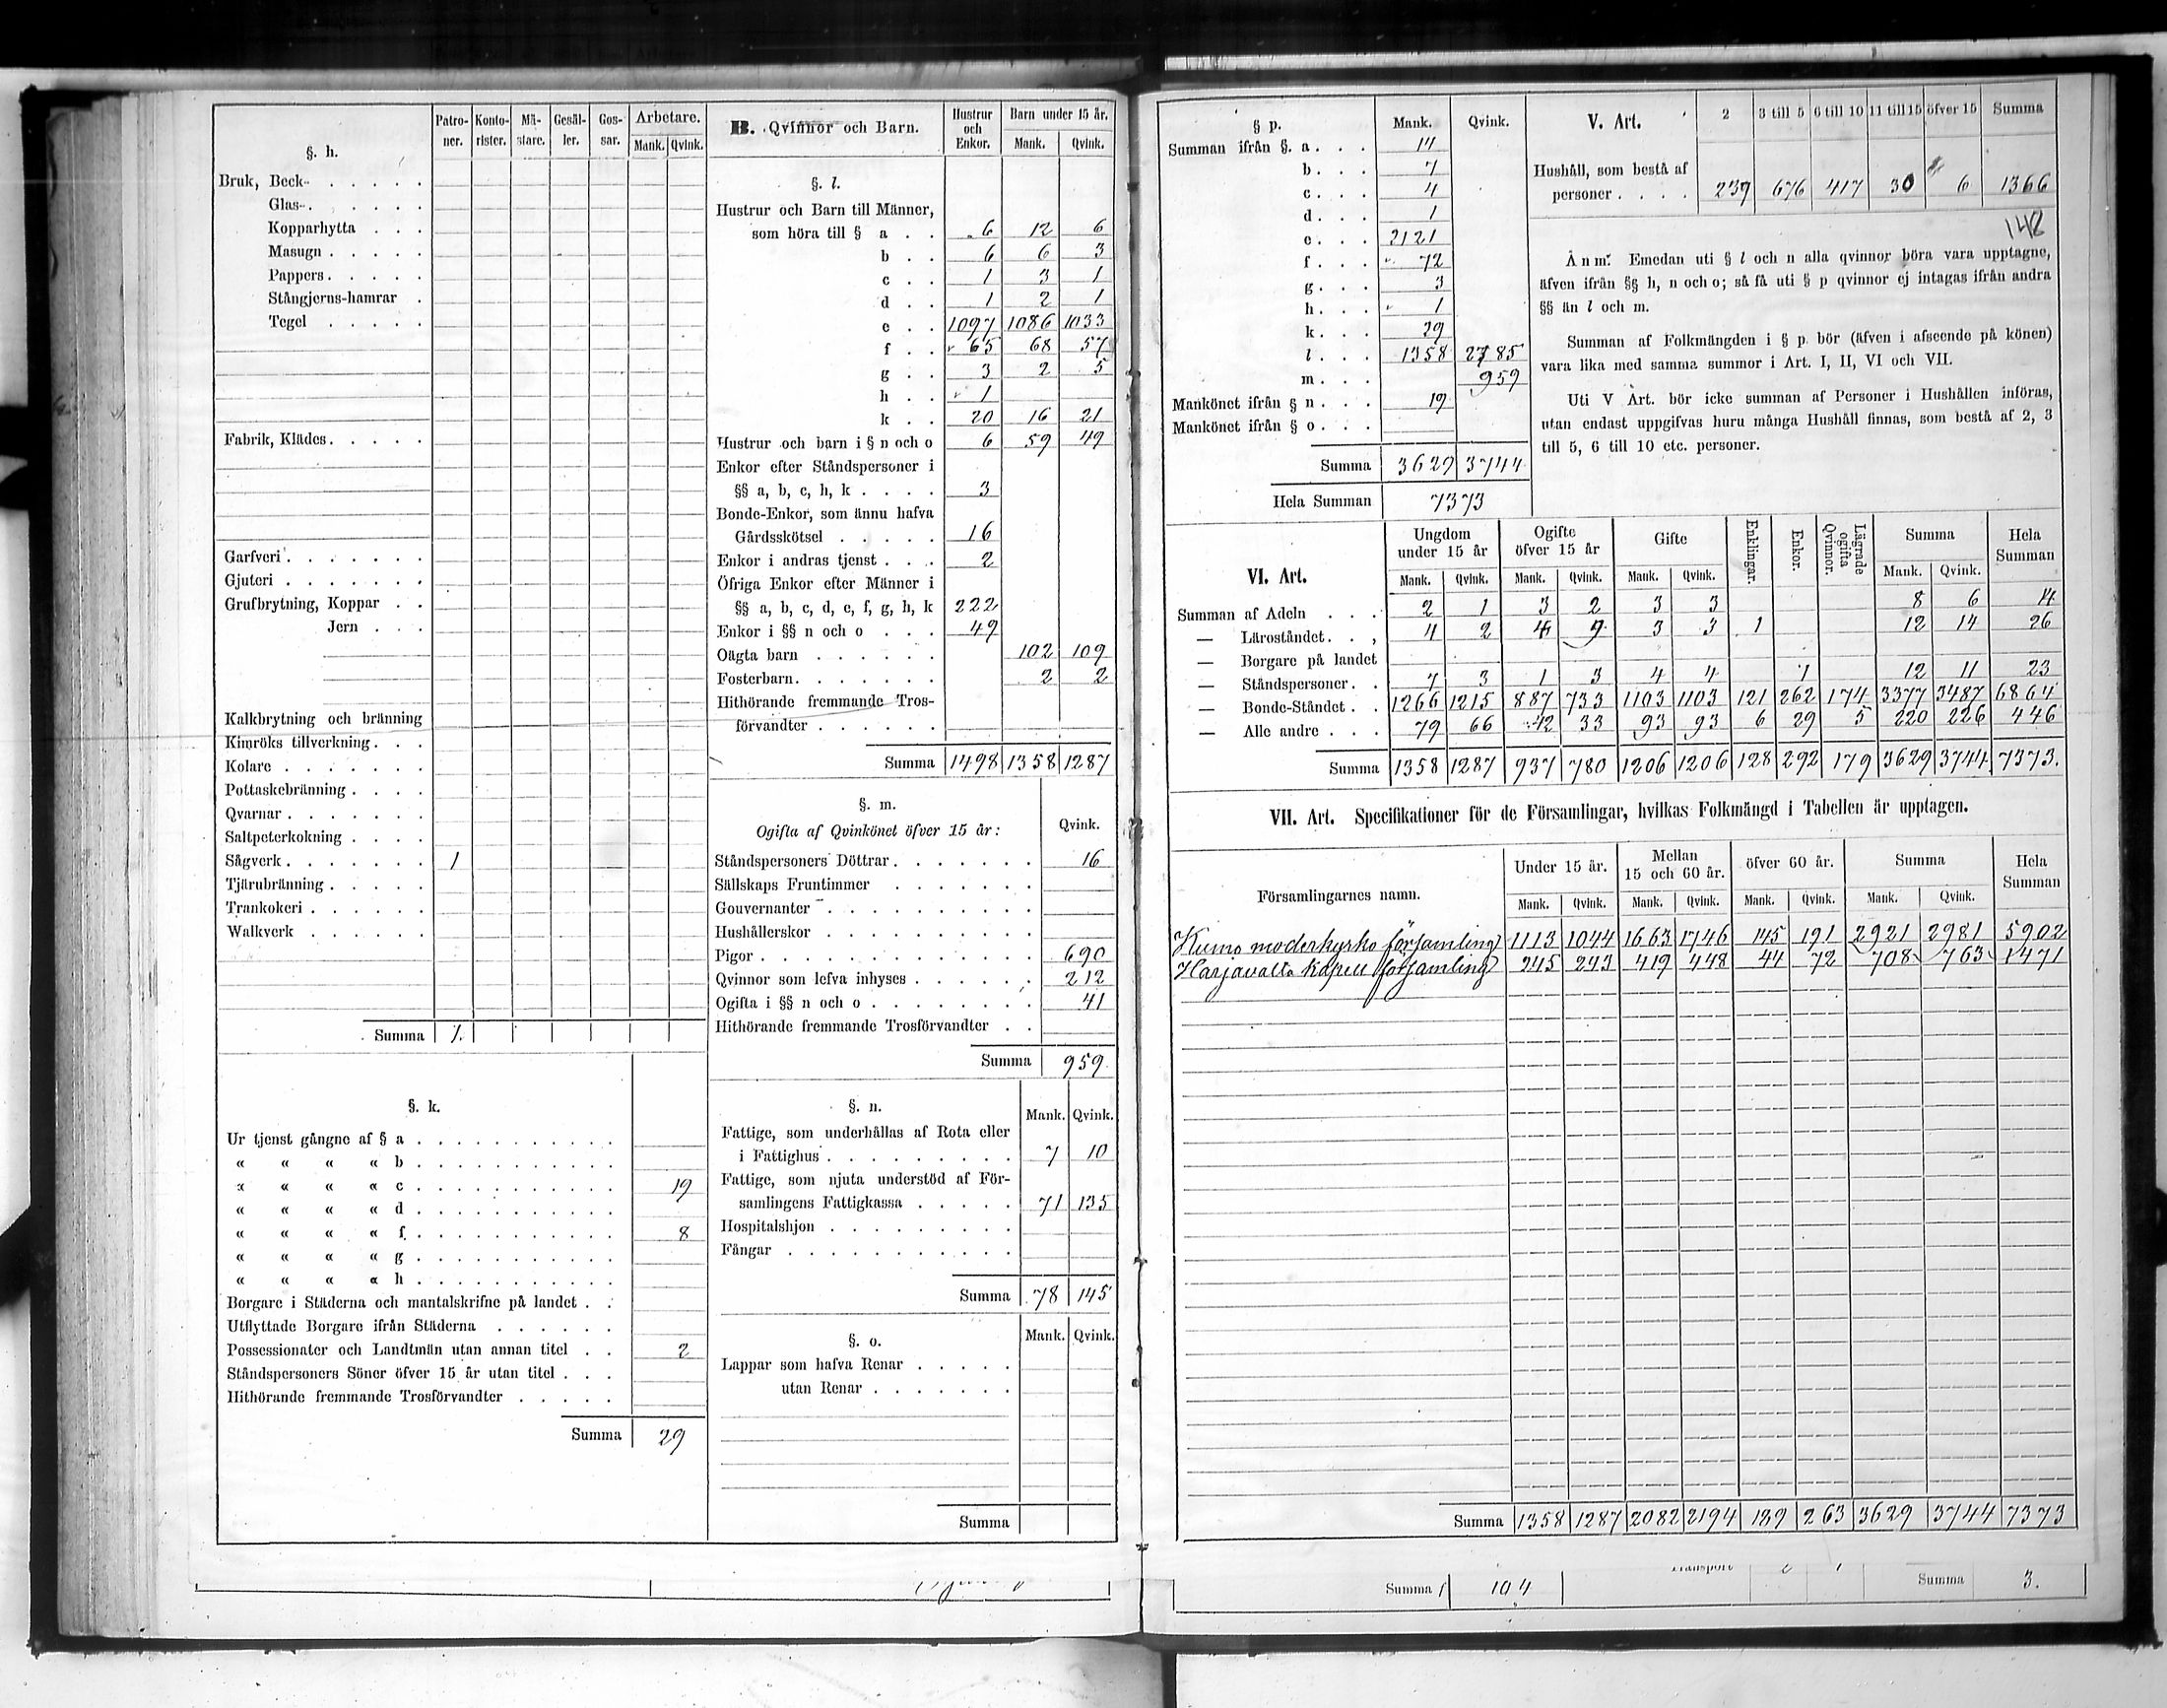 §. h. Patro-ner. Konto-rister. Mä-stare. Gesäl-ler. Gos-sar. Arbetare. Mank. Qvink.
Bruk, Beck-
Glas-
Kopparhytta
Masugn
Pappers
Stångjerns-hamrar
Tegel
Fabrik, Klädes
Garfveri
Gjuteri
Grufbrytning, Koppar
Jern
Kalkbrytning och bränning
Kimröks tillverkning
Kolare
Pottaskebränning
Qvarnar
Saltpeterkokning
Sågverk 1
Tjärubränning
Trankokeri
Walkverk
Summa 1.
§. k.
Ur tjenst gångne af § a
« « « « b
« « « « c 19
« « « « d
« « « « f 8
« « « « g
« « « « h
Borgare i Städerna och mantalskrifne på landet
Utflyttade Borgare ifrån Städerna
Possessionater och Landtmän utan annan titel 2
Ståndspersoners Söner öfver 15 år utan titel
Hithörande fremmande Trosförvandter
Summa 29
B. Qvinnor och Barn. Hustrur och Enkor. Barn under 15 år. Mank. Qvink.
§. l.
Hustrur och Barn till Männer,
som höra till § a 6 12 6
b 6 6 3
c 1 3 1
d 1 2 1
e 1097 1086 1033
f 65 68 57
g 3 2 5
h 1
k 20 16 21
Hustrur och barn i § n och o 6 59 49
Enkor efter Ståndspersoner i
§§ a, b, c, h, k 3
Bonde-Enkor, som ännu hafva
Gårdsskötsel 16
Enkor i andras tjenst 2
Öfriga Enkor efter Männer i
§§ a, b, c, d, e, f, g, h, k 222
Enkor i §§ n och o 49
Oägta barn 102 109
Fosterbarn 2 2
Hithörande fremmande Tros-
förvandter
Summa 1498 1358 1287
§. m.
Ogifta af Qvinkönet öfver 15 år: Qvink.
Ståndspersoners Döttrar 16
Sällskaps Fruntimmer
Gouvernanter
Hushållerskor
Pigor 690
Qvinnor som lefva inhyses 212
Ogifta i §§ n och o 41
Hithörande fremmande Trosförvandter
Summa 959.
§. n. Mank. Qvink.
Fattige, som underhållas af Rota eller
i Fattighus 7 10
Fattige, som njuta understöd af För-
samlingens Fattigkassa 71 135
Hospitalshjon
Fångar
Summa 78 145
§. o. Mank. Qvink.
Lappar som hafva Renar
utan Renar
Summa
§ p. Mank. Qvink.
Summan ifrån §. a 14
b 7
c 4
d 1
e 2121
f 72
g 3
h 1
k 29
l 1358 2785
m 959
Mankönet ifrån § n 19
Mankönet ifrån § o
Summa 3629 3744
Hela Summan 7373
V. Art. 2 3 till 5 6 till 10 11 till 15 öfver 15 Summa
Hushåll, som bestå af
personer 239 676 417 30 6 1366
148
Anm. Emedan uti § l och n alla qvinnor böra vara upptagne,
äfven ifrån §§ h, n och o; så få uti § p qvinnor ej intagas ifrån andra
§§ än l och m.
Summan af Folkmängden i § p. bör (äfven i afseende på könen)
vara lika med samma summor i Art. I, II, VI och VII.
Uti V Art. bör icke summan af Personer i Hushållen införas,
utan endast uppgifvas huru många Hushåll finnas, som bestå af 2, 3
till 5, 6 till 10 etc. personer.
VI. Art. Ungdom under 15 år Ogifte öfver 15 år Gifte Enklingar. Enkor. Lägrade ogifta Qvinnor. Summa Hela Summan
Mank. Qvink. Mank. Qvink. Mank. Qvink. Mank. Qvink.
Summan af Adeln 2 1 3 2 3 3 8 6 14
— Läroståndet 4 2 4 9 3 3 1 12 14 26
— Borgare på landet
— Ståndspersoner 7 3 1 3 4 4 1 12 11 23
— Bonde-Ståndet 1266 1215 887 733 1103 1103 121 262 174 3377 3487 6864
— Alle andre 79 66 42 33 93 93 6 29 5 220 226 446
Summa 1358 1287 937 780 1206 1206 128 292 179 3629 3744 7373.
VII. Art. Specifikationer för de Församlingar, hvilkas Folkmängd i Tabellen är upptagen.
Församlingarnes namn. Under 15 år. Mellan 15 och 60 år. öfver 60 år. Summa Hela Summan
Mank. Qvink. Mank. Qvink. Mank. Qvink. Mank. Qvink.
Kumo moderkyrko församling 1113 1044 1663 1746 145 191 2921 2981 5902
Harjavalta kapell församling 245 243 419 448 44 72 708 763 1471
Summa 1358 1287 2082 2194 189 263 3629 3744 7373
Summa 104 Transport 2 1 Summa 3.